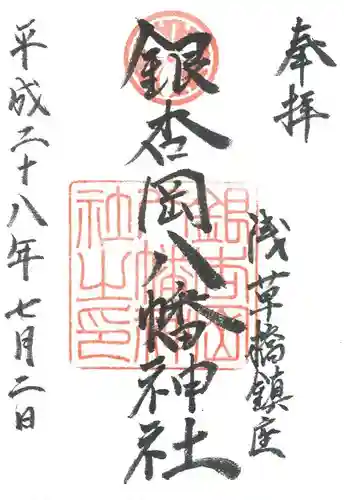 奉拝
浅草橋鎮座
銀杏岡八幡神社
銀杏岡八幡神社之印
平成二十八年七月二日